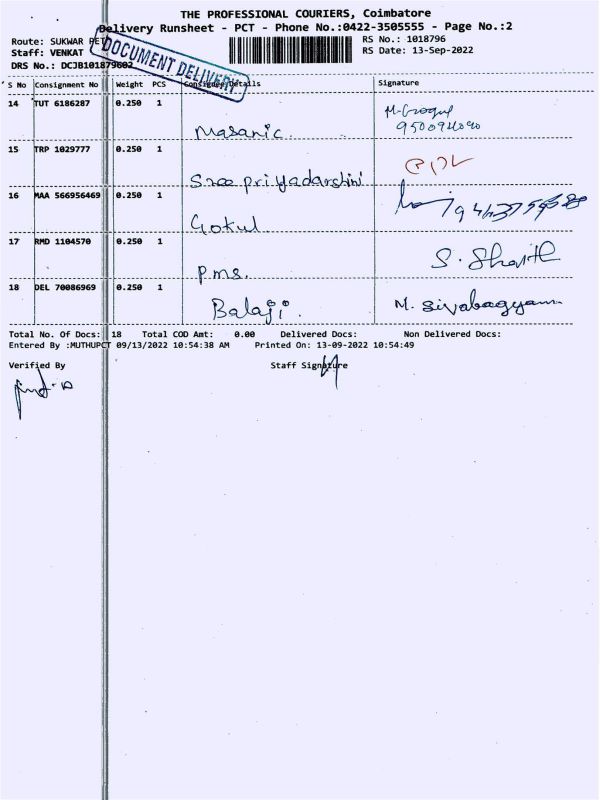 THE PROFESSIONAL COURIERS, Coimbatore
Delivery Runsheet - PCT - Phone No.:0422-3505555 - Page No.:2
Route: SUKWAR PET
RS No.: 1018796
Staff: VENKAT
RS Date: 13-Sep-2022
DRS No.: DCJB101879602
DOCUMENT DELIVERY
S No Consignment No Weight PCS Consignee Details Signature
14 TUT 6186287 0.250 1 Masanic.
15 TRP 1029777 0.250 1 Sree priyadarshini
16 MAA 566956469 0.250 1 Gokul
17 RMD 1104570 0.250 1 P.ms. S. Sharth
18 DEL 70086969 0.250 1 Balaji. M. Sivabagyam
Total No. Of Docs: 18 Total COD Amt: 0.00 Delivered Docs: Non Delivered Docs:
Entered By :MUTHUPCT 09/13/2022 10:54:38 AM Printed On: 13-09-2022 10:54:49
Verified By Staff Signature